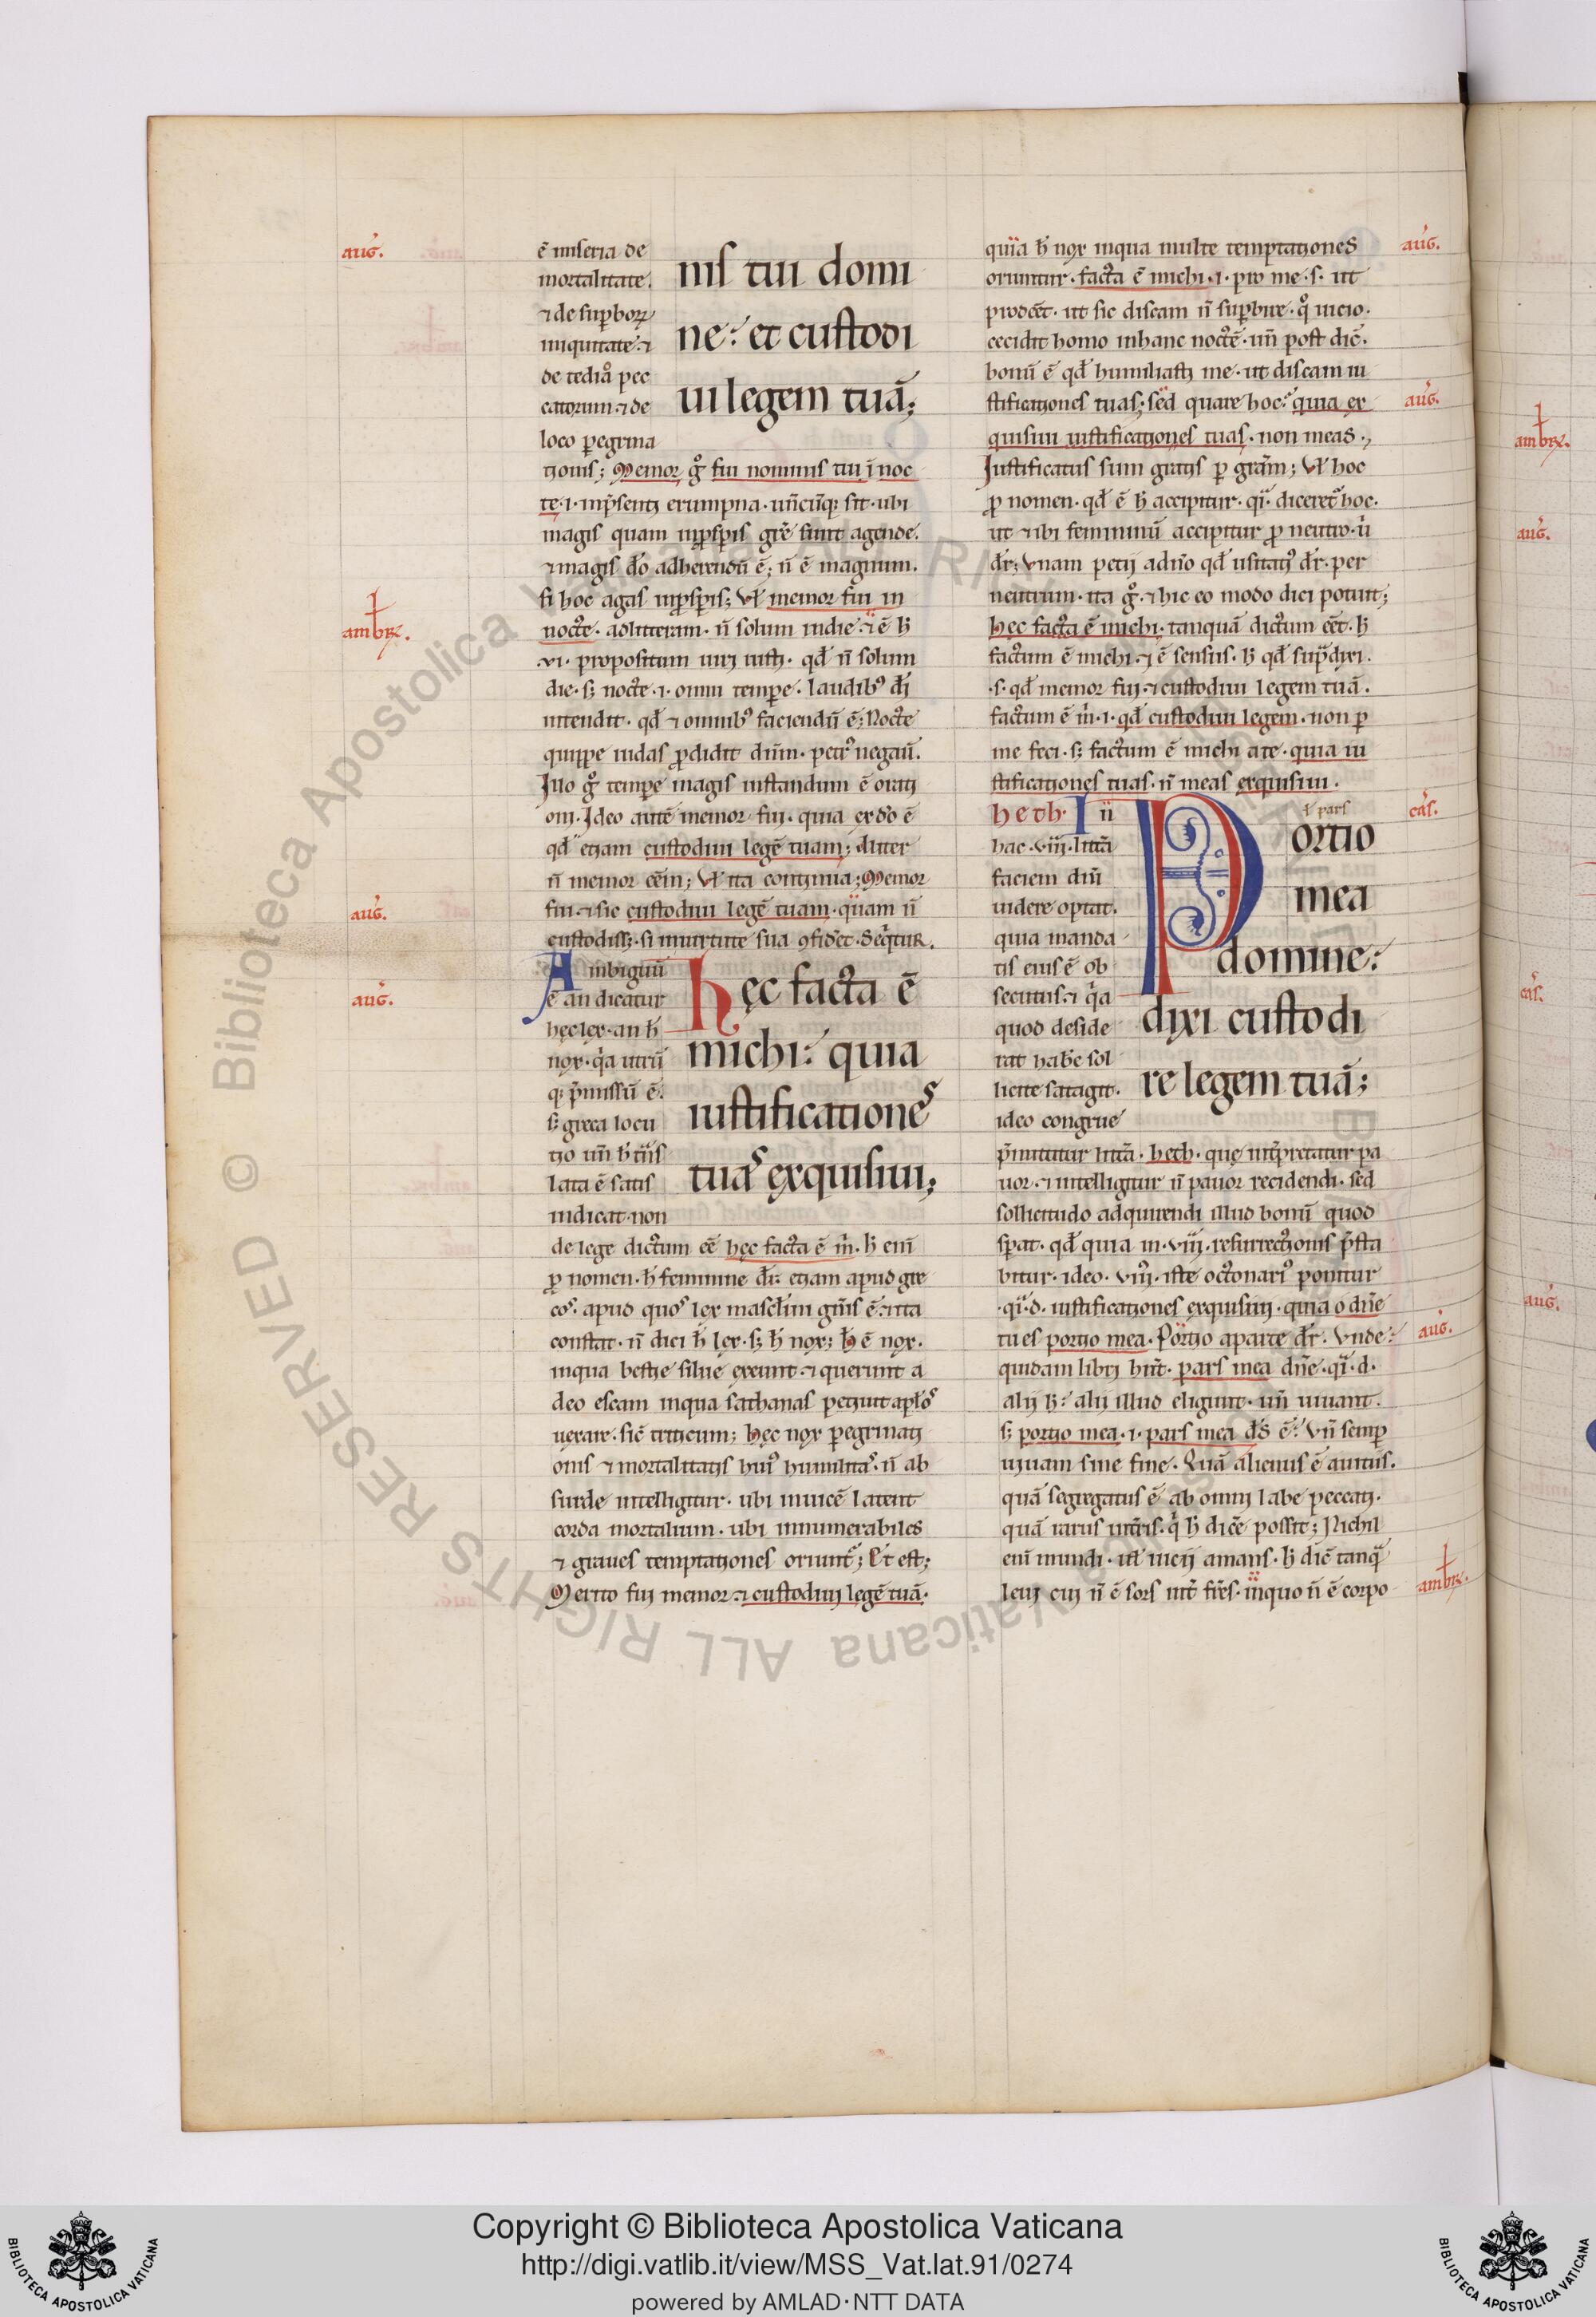 aug̃.
ẽ miseria de
mortalitate.
⁊ de supboꝝ
iniquitate. ⁊
de tedio pec
catorum. ⁊ de
loco pegrina
nis tui domi
ne: et custodi
ui legem tuã;
tionis; Memor g̊ fui nominis tui ĩ noc
te. i. inp̃senti erumpna. uñcũq; sit. ubi
magis quam inpsp̃is gr̃e sunt agende.
⁊ magis d̃o adherendũ ẽ; ñ ẽ magnum.
si hoc agas inpsp̃is; Vł memor fui in
ambr̃.
nocte. ad litteram. ñ solum indie. ⁊ ẽ ħ
.vi. propositum uiri iusti. qđ ñ solum
die. s; nocte. i. omni tempe. laudibꝰ đi
intendit. qđ ⁊ omnibꝰ faciendũ ẽ; Nocte
quippe iudas pdidit dñm. petrꝰ negauit.
Illo g̊ tempe magis instandum ẽ orati
oni. Ideo autẽ memor fui. quia ex d̃o ẽ
qđ etiam custodiui legẽ tuam; aliter
ñ memor eẽm; Vł ita continua; Memor
aug̃.
fui. ⁊ sic custodiui legẽ tuam. quam ñ
custodiss; si inuirtute sua ꝯfidet. Seq̃tur.
Ambiguũ
aug̃.
ẽ an dicatur
hęc lex. an ħ
nox. q̃a utrũ
q; p̃missũ ẽ.
s; greca locu
tio uñ ħ tñs
lata ẽ satis
indicat. non
hęc facta ẽ
michi: quia
iustificationes
tuas exquisiui;
de lege dictum eẽ hęc facta ẽ m̃. ħ eni
p nomen. ħ feminine dr̃. etiam apud gre
cos. apud quos lex mascl̃ini gñis ẽ. ⁊ ita
constat. ñ dici ħ lex. s; ħ nox; ħ ẽ nox.
inqua bestie silue exeunt. ⁊ querunt a
deo escam inqua sathanas petiuit apł̃os
uexare. sic̃ triticum; hęc nox pegrinati
onis ⁊ mortalitatis huiꝰ humilitas. ñ ab
surde intelligitur. ubi inuicẽ latent
corda mortalium. ubi innumerabiles
⁊ graues temptationes oriunt̃; Et est;
Merito fui memor. ⁊ custodiui legẽ tuã.
quia ħ nox inqua multe temptationes
aug̃.
oriuntur. facta ẽ michi. i. pro me. s. ut
prodeẽt. ut sic discam ñ supbire. q̊ uicio.
cecidit homo inhanc noctẽ. uñ post dic̃.
bonũ ẽ qđ humiliasti me. ut discam iu
stificationes tuas; sed quare hoc: quia ex
aug̃.
quisiui iustificationes tuas. non meas.,
Iustificatus sum gratis p gr̃am; Vł hoc
p nomen. qđ ẽ ħ accipitur. qi. diceret̃ hoc.
ut ⁊ ibi femininũ accipitur p neutro. u̇
dr̃; Vnam petij a dño qđ usitatꝰ dr̃. per
neutrum. ita g̊. ⁊ hic eo modo dici potuit;
hęc facta ẽ michi. tanquã dictum eẽt. ħ
factum ẽ michi. ⁊ ẽ sensus. ħ qđ sup̃dixi.
.s. qđ memor fui. ⁊ custodiui legem tuã.
factum ẽ m̃. i. qđ custodiui legem. non p
me feci. s; factum ẽ michi a te. quia iu
stificationes tuas. ñ meas exquisiui.
heth. In
hac .viij. littã
faciem diñ
uidere optat.
quia manda
tis eius ẽ ob
secutus. ⁊ q̃a
quod deside
rat habẽ sol
licite satagit.
ideo congrue
ł pars
Portio
cas̃.
mea
domine:
dixi custodi
re legem tuã;
p̃mittitur littã. heth. quę int̃pretatur pa
uor. ⁊ intelligitur ñ pauor recidendi. sed
sollicitudo adquirendi illud bonũ quod
sp̃at. qđ quia in .viij. resurrectionis p̃sta
bitur. ideo .viij. iste octonariꝰ ponitur
.qi. d. iustificationes exquisiui. quia o dñe
tu es portio mea. Portio a parte dr̃. Vnde
aug̃.
quidam libri hñt. pars mea dñe. qi. d.
alij ħ: alij illud eligunt. uñ uiuant.
s; portio mea. i. pars mea đs ẽ: Vñ semp
uiuam sine fine. Quã alienus ẽ a uitiis.
quã segregatus ẽ ab omni labe peccati.
quã rarus int̃ris. q̊ ħ dicẽ possit; Nichil
eni mundi. uł uicij amans. ħ dic̃ tanq̃
leui cui ñ ẽ sors int̃ fr̃es. inquo ñ ẽ corpo
ambr̃.
ambr̃.
aug̃.
cas̃.
aug̃.
© Biblioteca Apostolica Vaticana ALL RIGHTS RESERVED
Copyright © Biblioteca Apostolica Vaticana
http://digi.vatlib.it/view/MSS_Vat.lat.91/0274
powered by AMLAD·NTT DATA
BIBLIOTECA APOSTOLICA VATICANA
BIBLIOTECA APOSTOLICA VATICANA